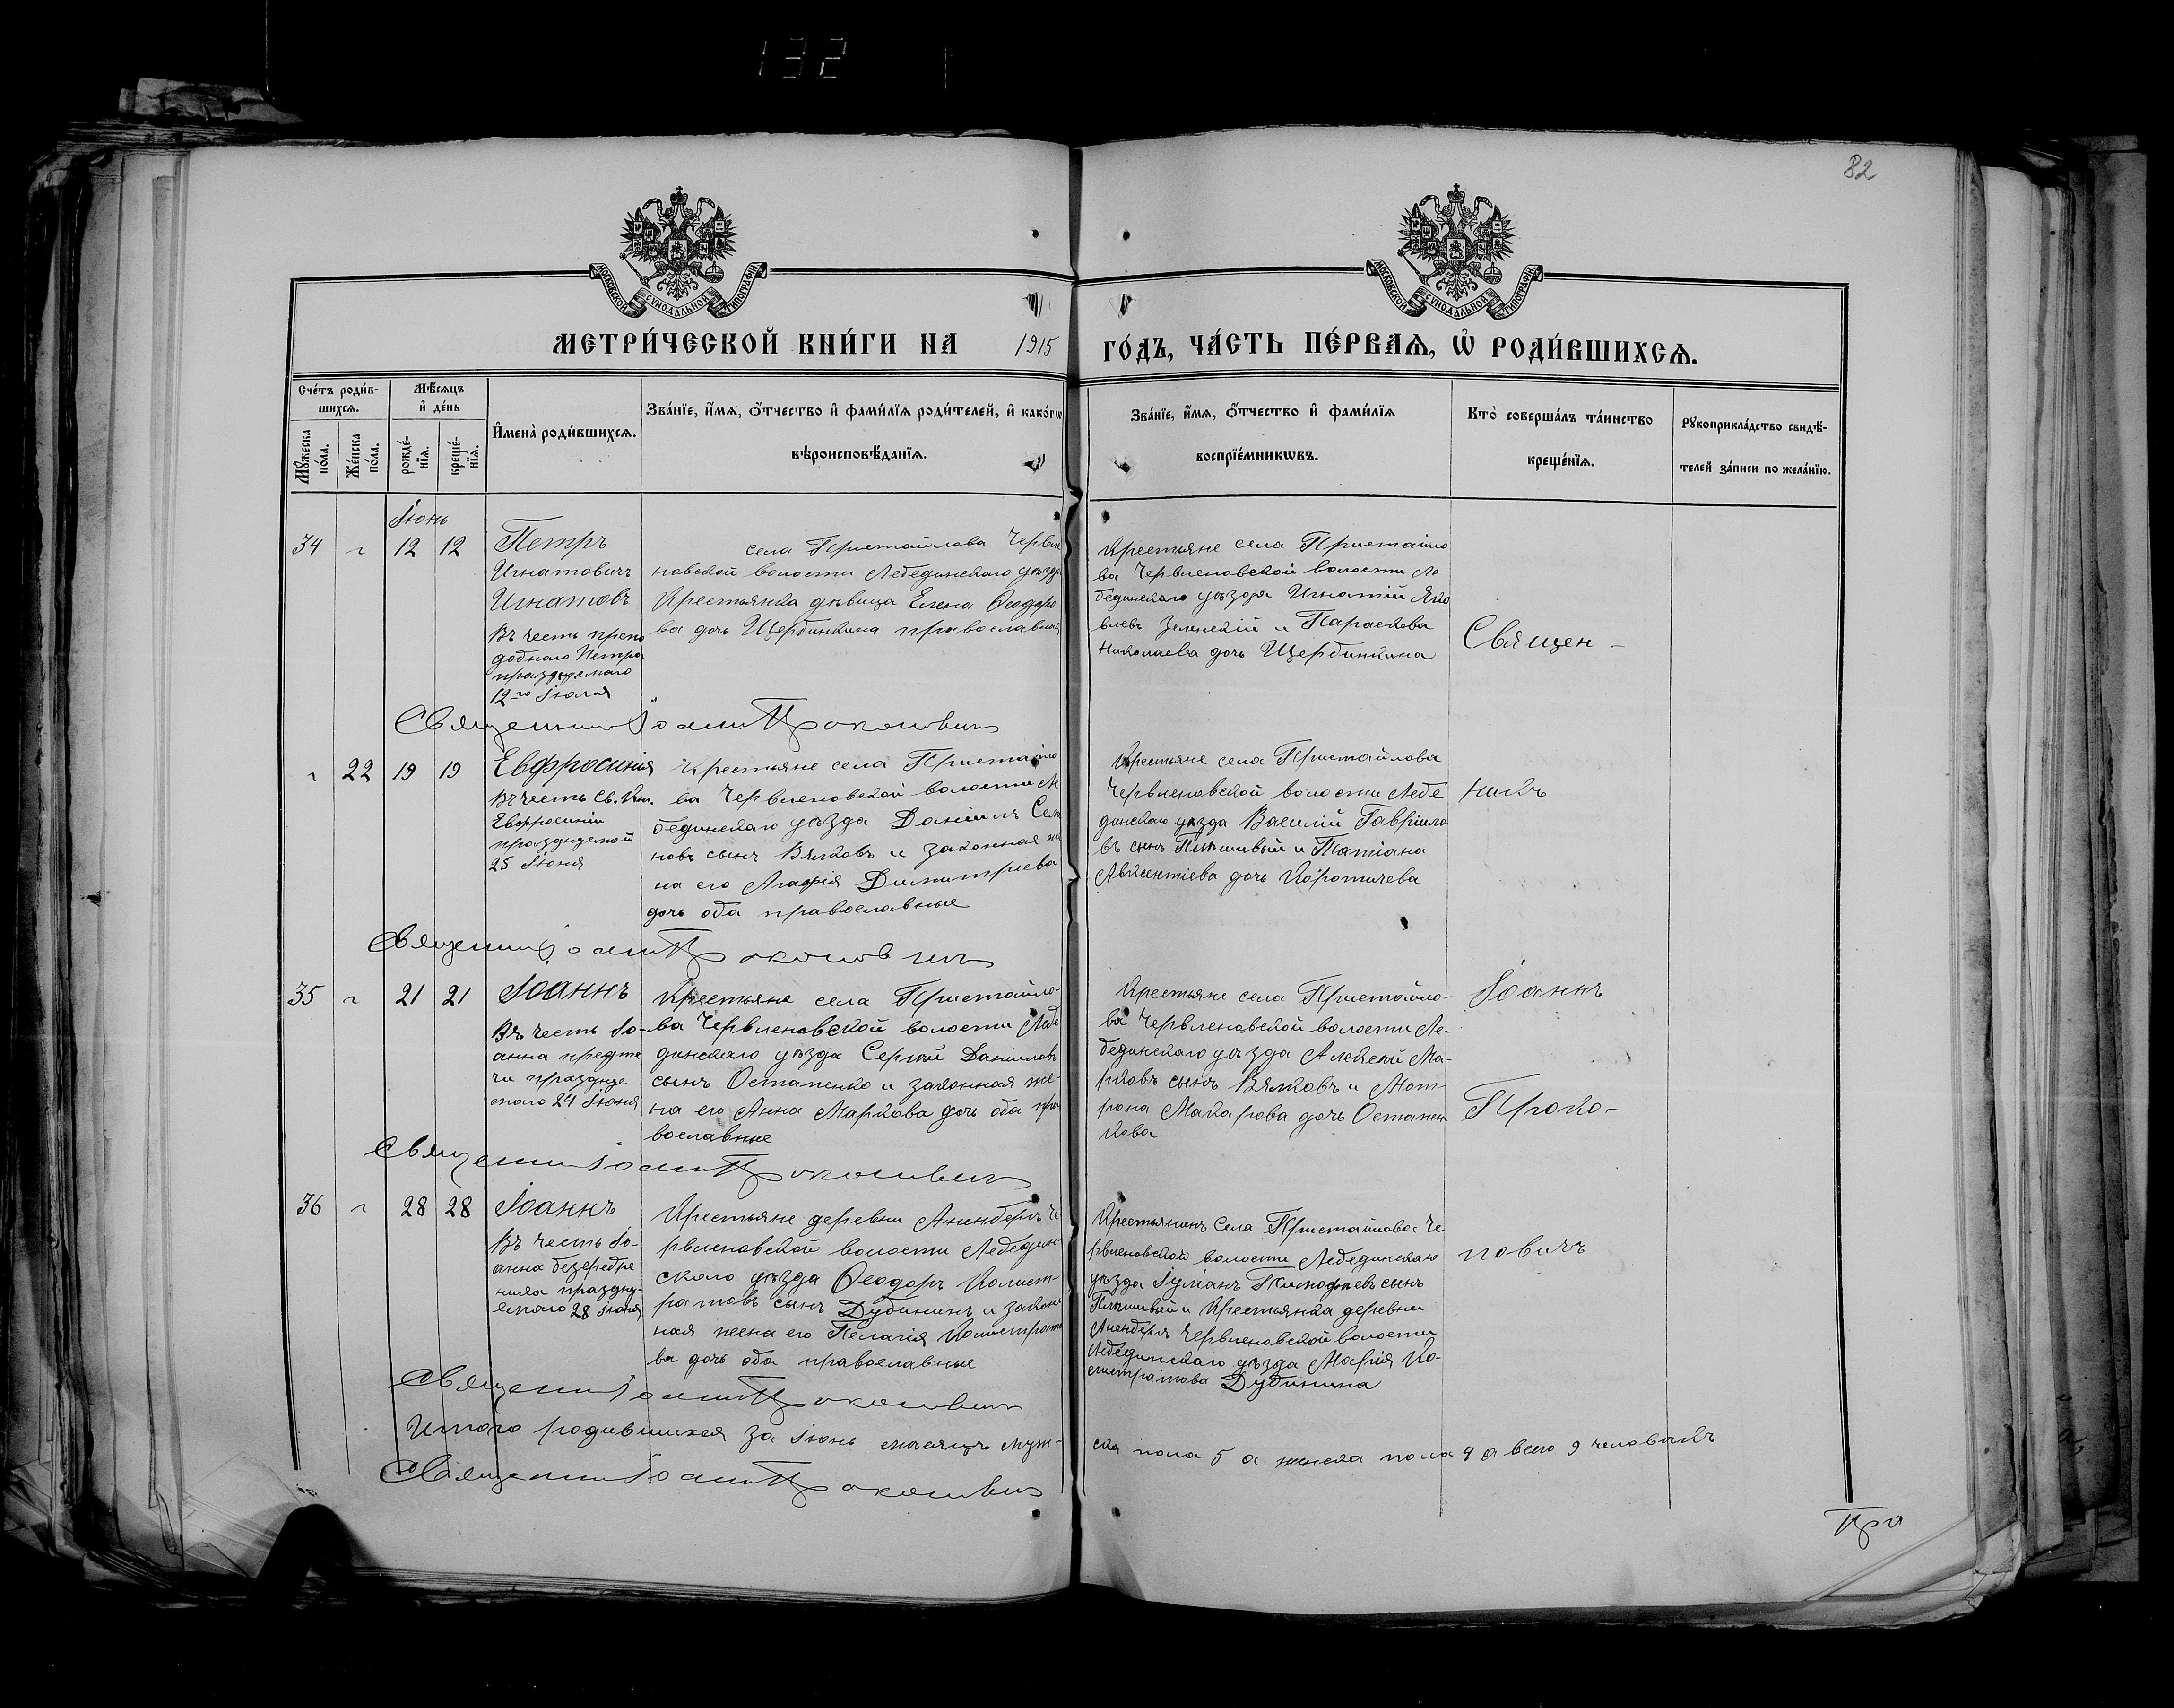 132
82
МОСКОВСКОЙ СУНОДАЛЬНОЙ ТИПОГРАФІИ
МОСКОВСКОЙ СУНОДАЛЬНОЙ ТИПОГРАФІИ
МЕТРИ́ЧЕСКОЙ КНИ́ГИ НА 1915 ГО́ДЪ, ЧА́СТЬ ПЕ́РВАѦ, Ѡ҆ РОДИ́ВШИХСѦ.
Сче́тъ роди́в-
шихсѧ.
Мꙋ́жеска по́ла.
Же́нска по́ла.
Мѣ́сѧцъ
и҆ де́нь
рожде́-
нїѧ.
креще́-
нїѧ.
И҆мена̀ роди́вшихсѧ.
Зва́нїе, и҆́мѧ, ѻ҆́тчество и҆ фами́лїѧ роди́телей, и҆ како́гѡ
вѣроисповѣ́данїѧ.
Зва́нїе, и҆́мѧ, ѻ҆́тчество и҆ фами́лїѧ
воспрїе́мникѡвъ.
Кто̀ соверша́лъ та́инство
креще́нїѧ.
Рꙋкоприкла́дство свидѣ́-
телей за́писи по жела́нїю.
Іюнь
34 " 12 12
Петръ
Игнатовичъ
Игнатовъ
Въ честь препо
добнаго Петра
празднуемаго
12го Іюня
села Пристайлова Червле
новской волости Лебединскаго уѣзда
Крестьянка дѣвица Елена Ѳеодоро
ва дочь Щербинкина православная
Крестьяне села Пристайло
ва Червленовской волости Ле
бединскаго уѣзда Игнатій Яко
влевъ Зеленскій и Параскева
Николаева дочь Щербинкина
Священ-
Священникъ Іоаннъ Прокоповичъ
" 22 19 19
Евфросинія
Въ честь Св. Кн.
Евфросиніи
празднуемой
25 Іюня
Крестьяне села Пристайло
ва Червленовской волости Ле
бединскаго уѣзда Даніилъ Семе
новъ сынъ Вялковъ и законная же
на его Агафія Димитріева
дочь оба православные
Крестьяне села Пристайлова
Червленовской волости Лебе
динскаго уѣзда Василій Гавріило
въ сынъ и Татіана
Авксентіева дочь Коротичева
никъ
Священникъ Іоаннъ Прокоповичъ
35 " 21 21
Іоаннъ
Въ честь Іо-
анна предте
чи праздуе
маго 24 Іюня
Крестьяне села Пристайло-
ва Червленовской волости Лебе
динскаго уѣзда Сергій Даніиловъ
сынъ Остапенко и законная же-
на его Анна Маркова дочь оба пра
вославные
Крестьяне села Пристайло-
ва Червленовской волости Ле-
бединскаго уѣзда Алексѣй Ма-
рковъ сынъ Вялковъ и Мот-
рона Макарова дочь Остапен
кова
Іоаннъ
Проко-
Священникъ Іоаннъ Прокоповичъ
36 " 28 28
Іоаннъ
Въ честь Іо-
анна безсребре
ника праздну-
емаго 28 Іюня
Крестьяне деревни Че
рвленовской волости Лебедин-
скаго уѣзда Ѳеодоръ Калист-
ратовъ сынъ Дубининъ и закон
ная жена его Пелагія Калистрато
ва дочь оба православные
Крестьянинъ Села Пристайлова Че-
рвленовской волости Лебединскаго
уѣзда Іуліанъ сынъ
и Крестьянка деревни
Червленовской волости
Лебединскаго уѣзда Марія Ка-
листратова Дубинина
повичъ
Священникъ Іоаннъ Прокоповичъ
Итого родившихся за Іюнь мѣсяцъ муж-
ска пола 5 а женска пола 4 а всего 9 человѣкъ
Священникъ Іоаннъ Прокоповичъ
Про